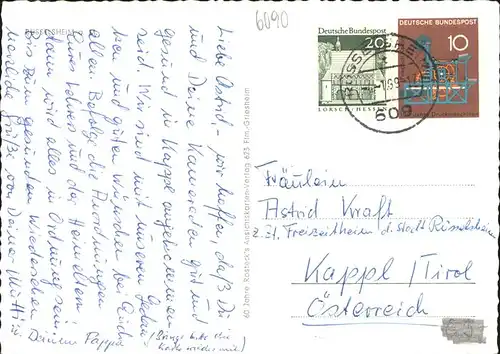 6090
RÜSSELSHEIM
Liebe Astrid, – wir hoffen, daß Du
und Deine Kameraden gut und
gesund in Kappl angekommen
seid. Wir sind mit unseren Gedan
ken und guten Wünschen bei Euch
allen. Befolge die Anordnungen
Eures Lehrers und der Heimeltern
dann wird alles in Ordnung sein.
Bis zum gesunden Wiedersehen
Grüße von Deiner Mutti
u. Deinem Pappa
(Bringe bitte die
Karte wieder mit)
60 Jahre Rosteck's Ansichtskarten-Verlag 623 Ffm.-Griesheim
DEUTSCHE BUNDESPOST
20
LORSCH/HESSEN
DEUTSCHE BUNDESPOST
10
609
Fräulein
Astrid Kraft
z.Zt. Freizeitheim d. Stadt Rüsselsheim
Kappl/Tirol
Österreich